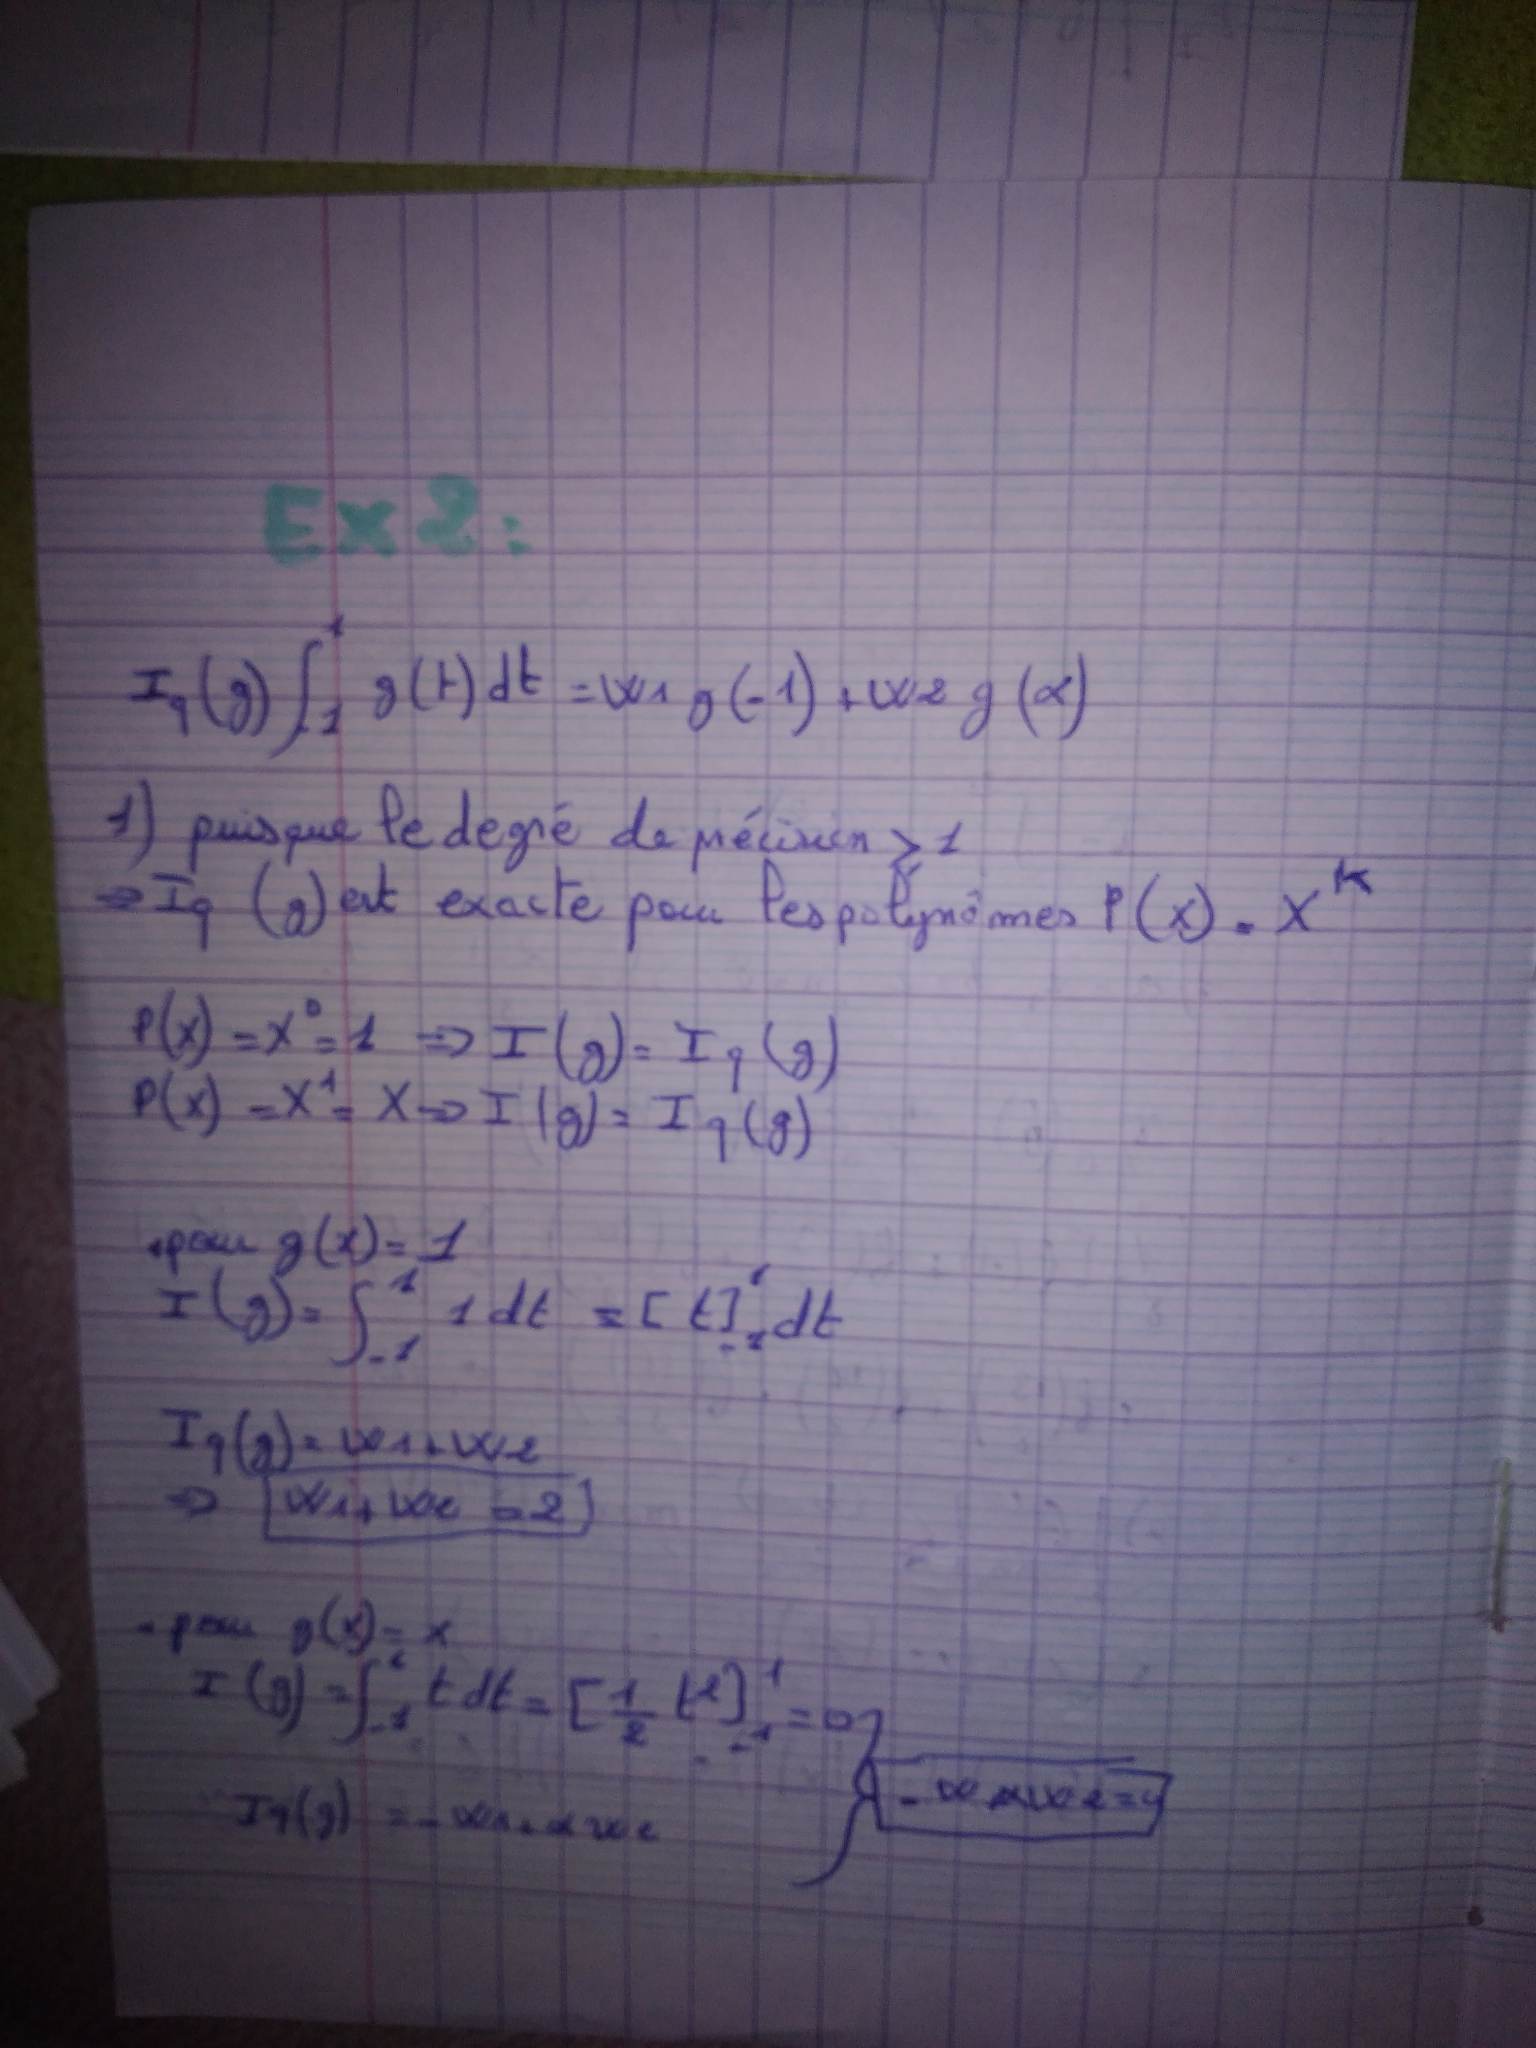 Ex 2:
Iq(g) ∫₋₁¹ g(t) dt = w1 g(-1) + w2 g(α)
1) puisque le degré de précision ≥ 1
⇒ Iq (g) est exacte pour les polynômes P(x) = X^k
P(x) = X⁰ = 1 ⇒ I(g) = Iq(g)
P(x) = X¹ = X ⇒ I(g) = Iq(g)
• pour g(x) = 1
I(g) = ∫₋₁¹ 1 dt = [t]₋₁¹ dt
Iq(g) = w1 + w2
⇒ w1 + w2 = 2
• pour g(x) = x
I(g) = ∫₋₁¹ t dt = [1/2 t²]₋₁¹ = 0
Iq(g) = - w1 + α w2